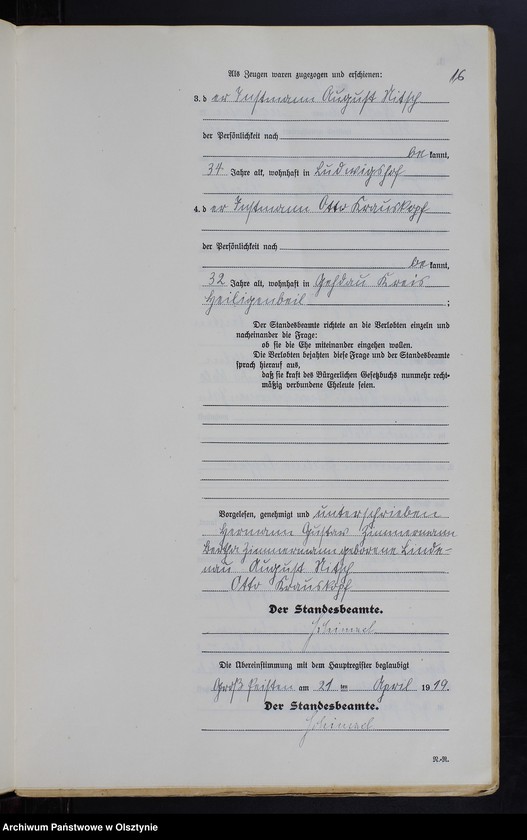 Als Zeugen waren zugezogen und erschienen:
16
3. der Instmann August Nitsch
der Persönlichkeit nach
be kannt,
34 Jahre alt, wohnhaft in Ludwigshof
4. der Instmann Otto Krauskopf
der Persönlichkeit nach
be kannt,
32 Jahre alt, wohnhaft in Gehdau Kreis
Heiligenbeil ;
Der Standesbeamte richtete an die Verlobten einzeln und
nacheinander die Frage:
ob sie die Ehe miteinander eingehen wollen.
Die Verlobten bejahten diese Frage und der Standesbeamte
sprach hierauf aus,
daß sie kraft des Bürgerlichen Gesetzbuchs nunmehr recht-
mäßig verbundene Eheleute seien.
Vorgelesen, genehmigt und unterschrieben
Hermann Gustav Zimmermann
Bertha Zimmermann geborene Linde-
nau August Nitsch
Otto Krauskopf
Der Standesbeamte.
Schimsel
Die Übereinstimmung mit dem Hauptregister beglaubigt
Groß Peisten am 21 ten April 1919.
Der Standesbeamte.
Schimsel
R.-R.
Archiwum Państwowe w Olsztynie